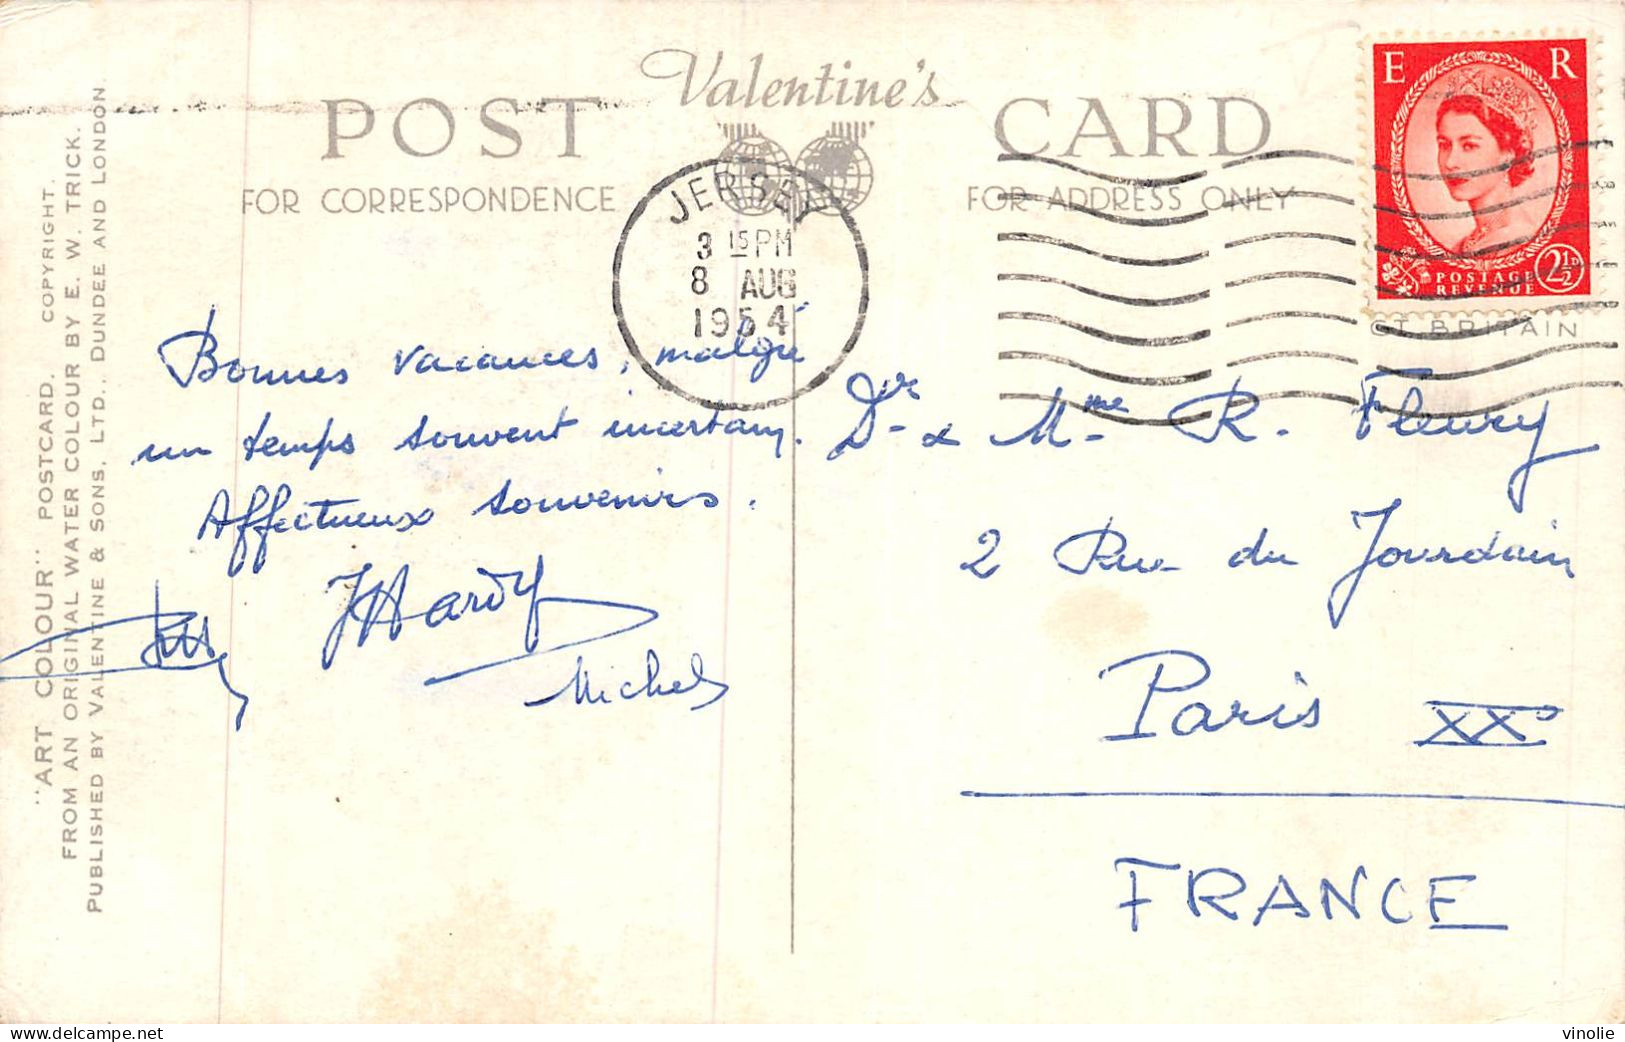 POST Valentine's CARD
FOR CORRESPONDENCE
FOR ADDRESS ONLY
E R
POSTAGE
REVENUE
2½D
GT. BRITAIN
JERSEY
3 15 PM
8 AUG
1954
Bonnes vacances, malgré
un temps souvent incertain.
Affectueux souvenirs.
JHardy
Michel
Dr & Mme R. Fleury
2 Rue du Jourdain
Paris XXe
FRANCE
"ART COLOUR" POSTCARD. COPYRIGHT.
FROM AN ORIGINAL WATER COLOUR BY E. W. TRICK.
PUBLISHED BY VALENTINE & SONS, LTD., DUNDEE AND LONDON.
www.delcampe.net
vinolie